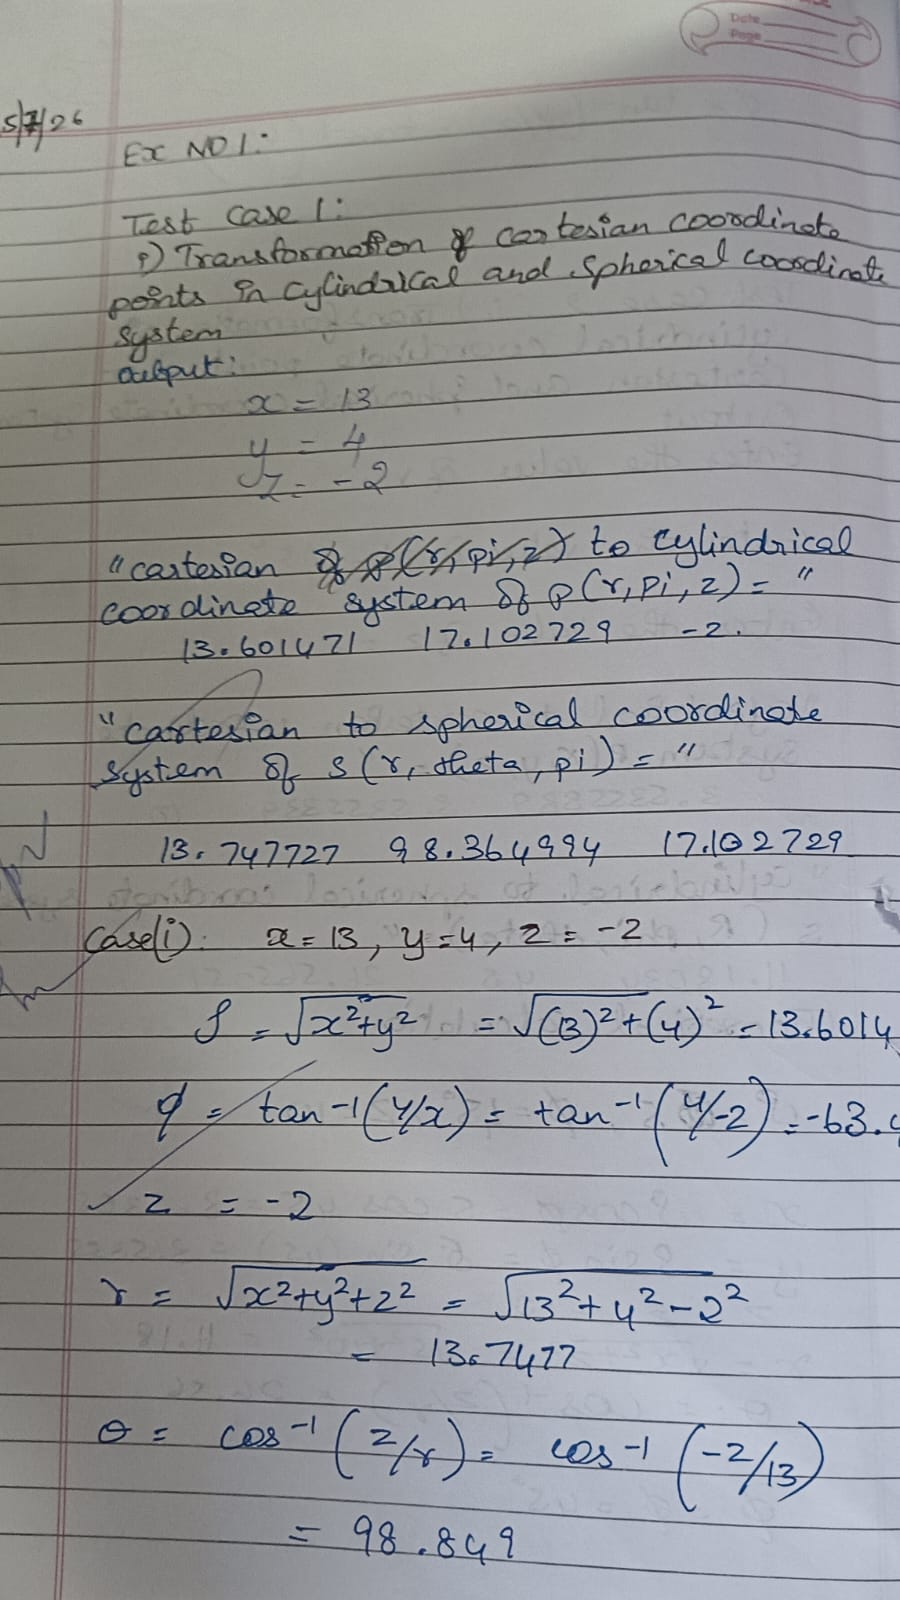 Date
Page
5/7/26
Ex NO 1:
Test Case 1:
i) Transformation of cartesian coordinate
points in cylindrical and spherical coordinate
system
output:
x = 13
y = 4
z = -2
"cartesian of P(r, pi, z) to cylindrical
coordinate system of P(r, pi, z) = "
13.601471 17.102729 -2.
"cartesian to spherical coordinate
system of s(r, theta, pi) = "
13.747727 98.364994 17.102729
Case(i): x = 13, y = 4, z = -2
ρ = √x²+y² = √(13)²+(4)² = 13.6014
φ = tan⁻¹(y/x) = tan⁻¹(4/-2) = -63.4
z = -2
r = √x²+y²+z² = √13²+4²-2²
= 13.7477
θ = cos⁻¹(z/r) = cos⁻¹(-2/13)
= 98.849